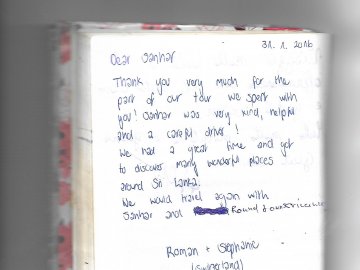 31. 1. 2016
Dear Sanhar
Thank you very much for the
part of our tour we spent with
you! Sanhar was very kind, helpful
and a careful driver!
We had a great time and got
to discover many wonderful places
around Sri Lanka.
We would travel again with
Sanhar and Round
Roman + Stephanie
(Switzerland)